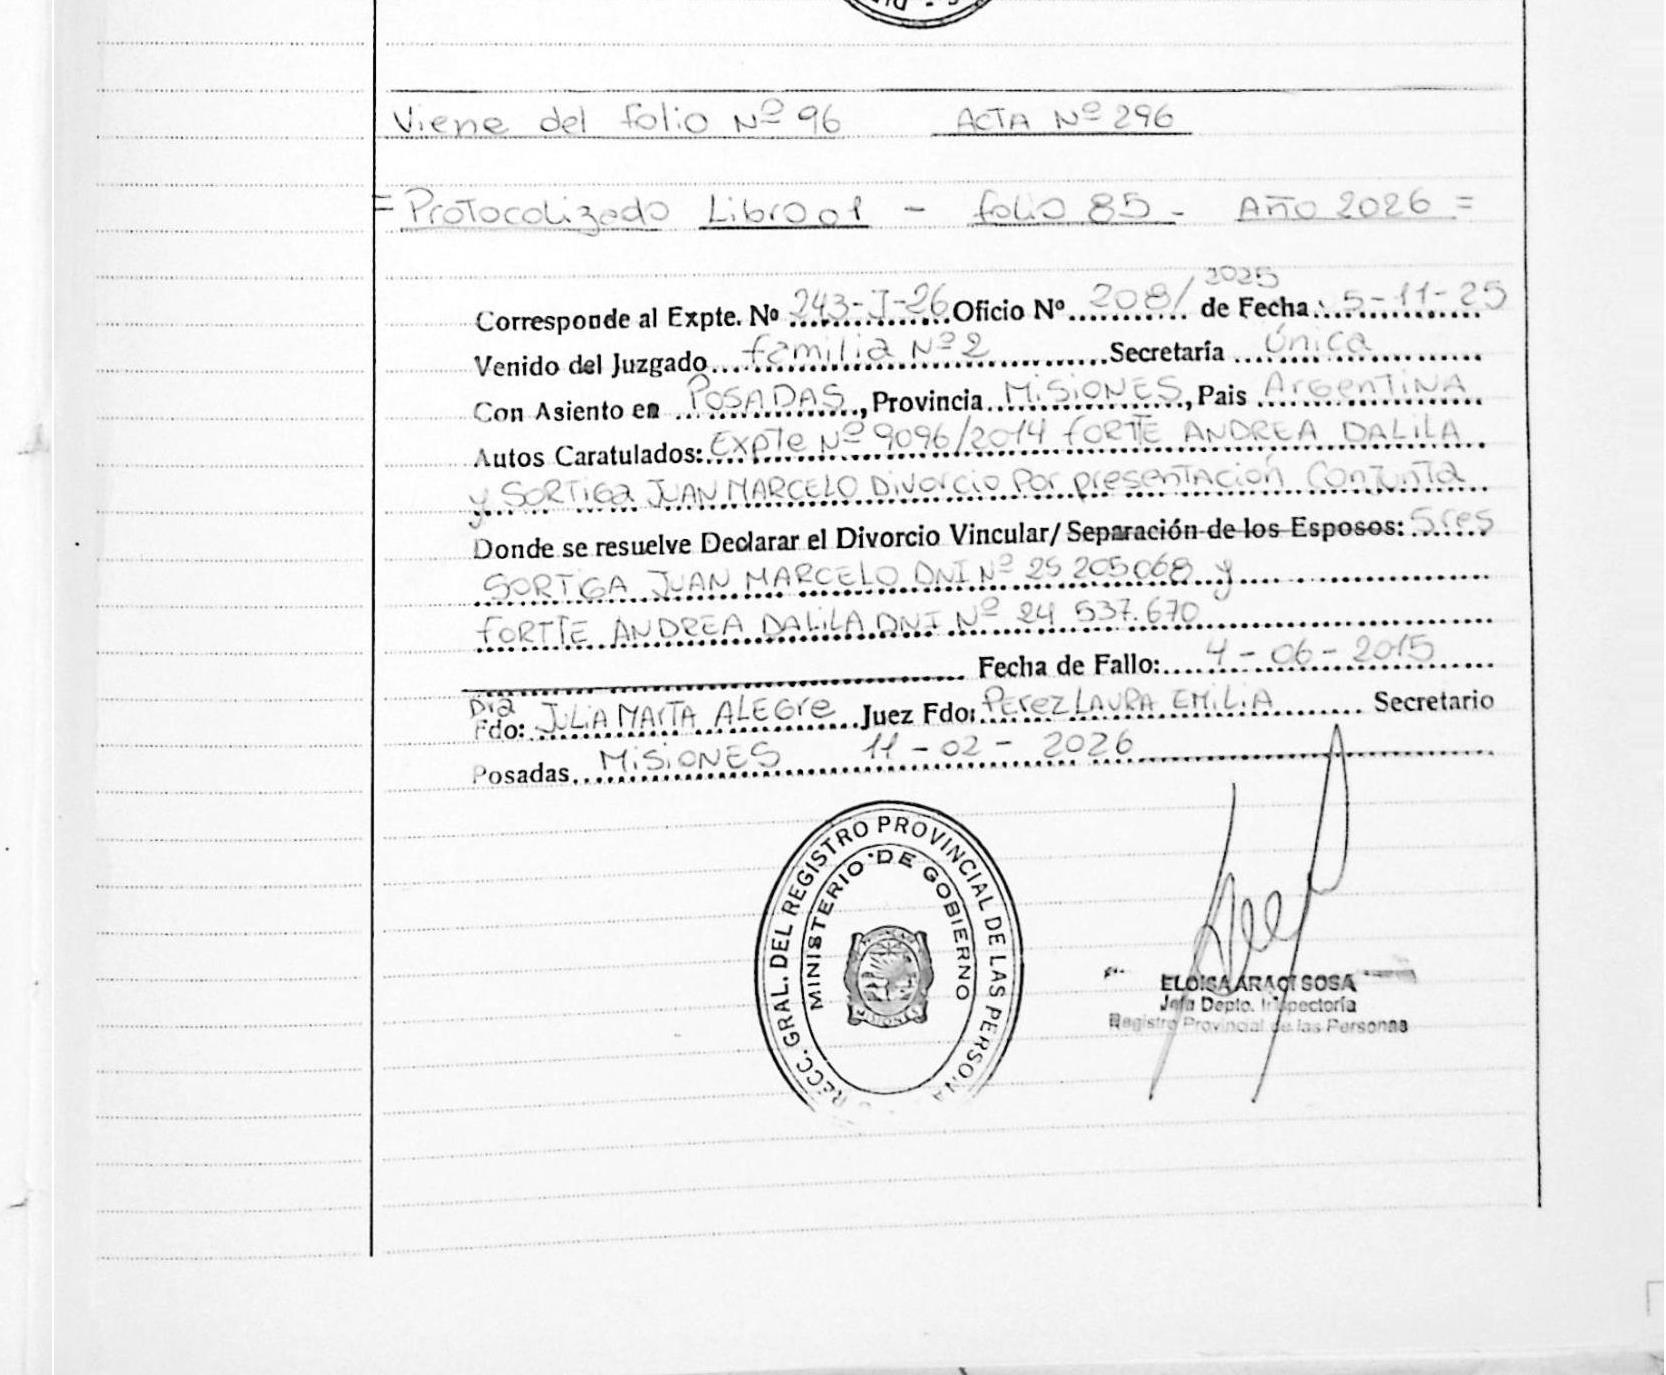 Viene del folio Nº 96 ACTA Nº 296
= Protocolizado Libro 01 - folio 85 - Año 2026 =
Corresponde al Expte. Nº 243-J-26 Oficio Nº 208/2025 de Fecha: 5-11-25
Venido del Juzgado familia Nº 2 Secretaría Única
Con Asiento en POSADAS, Provincia MISIONES, Pais ArgenTINA
Autos Caratulados: Expte Nº 9096/2014 forTTE ANDREA DALILA
y SORTIGA JUAN MARCELO Divorcio Por presentación Conjunta
Donde se resuelve Declarar el Divorcio Vincular/ Separación de los Esposos: Sres
SORTIGA JUAN MARCELO DNI Nº 25 205068 y
forTTE ANDREA DALILA DNI Nº 24 537.670
Fecha de Fallo: 4-06-2015
Fdo: Dra JULIA MARTA ALEGre Juez Fdo: PErez LAURA EMILIA Secretario
Posadas, MISIONES 11-02-2026
RECC. GRAL. DEL REGISTRO PROVINCIAL DE LAS PERSONA
MINISTERIO DE GOBIERNO
MISIONES
ELOISA ARACI SOSA
Jefa Depto. Inspectoría
Registro Provincial de las Personas